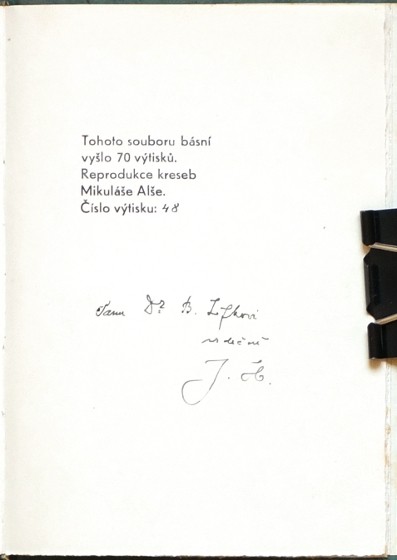 Tohoto souboru básní
vyšlo 70 výtisků.
Reprodukce kreseb
Mikuláše Alše.
Číslo výtisku: 48
Panu Dr B. Lifkovi
srdečně
J. H.